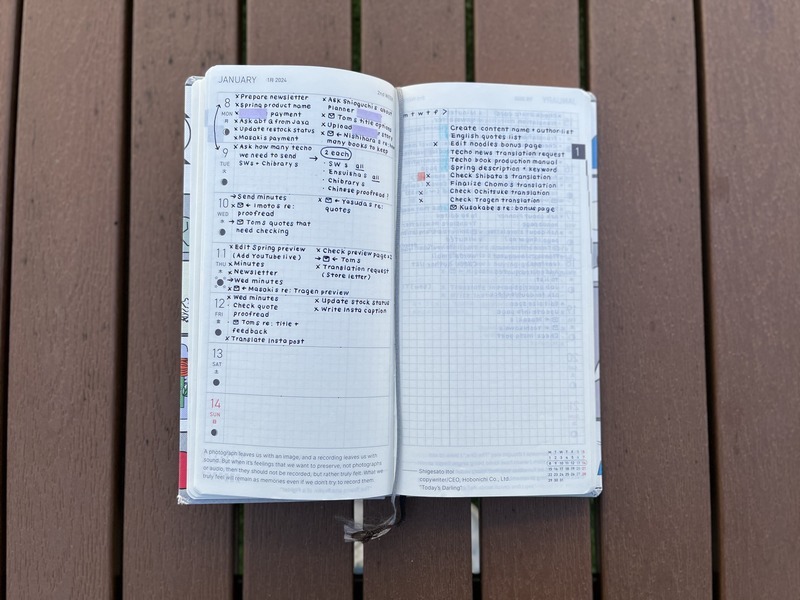 JANUARY 1月 2024
8
MON
× Prepare newsletter
× Spring product name
× payment
× Ask abt Q from Jaxa
× Update restock status
× Masaki's payment
× Ask Shioguchi's
planner
× Tom's title options
× Upload story
× ← Nishihara's
many books to keep
9
TUE
× Ask how many techo
we need to send
SWs + Chibrary's
→ 2 each
· SWs all
· Ensuisha's all
· Chibrary's
· Chinese proofread!
10
WED
水
→ Send minutes
× ← Imoto's re:
proofread
→ Tom's quotes that
need checking
× ← Yasuda's re:
quotes
11
THU
木
× Edit Spring preview
(Add YouTube live)
× Minutes
× Newsletter
→ Wed minutes
× ← Masaki's re: Tragen preview
× Check preview page x2
→ ← Tom's
× Translation request
(Store letter)
12
FRI
× Wed minutes
Check quote
proofread
Tom's re: title +
feedback
× Translate Insta post
× Update stock status
× Write Insta caption
13
SAT
土
14
SUN
日
A photograph leaves us with an image, and a recording leaves us with
sound. But when it's feelings that we want to preserve, not photographs
or audio, then they should not be recorded, but rather truly felt. What we
truly feel will remain as memories even if we don't try to record them.
m t w t f >
Create content name + author list
English quotes list
× Edit noodles bonus page
Techo news translation request
Techo book production manual
Spring description + keyword
× Check Shibata's translation
× Finalize Chomo's translation
× Check Ochitsuke translation
× Check Trogen translation
Kusakabe's re: bonus page
1
Shigesato Itoi
copywriter/CEO, Hobonichi Co., Ltd.
"Today's Darling"
M T W T F S S
1 2 3 4 5 6 7
8 9 10 11 12 13 14
15 16 17 18 19 20 21
22 23 24 25 26 27 28
29 30 31